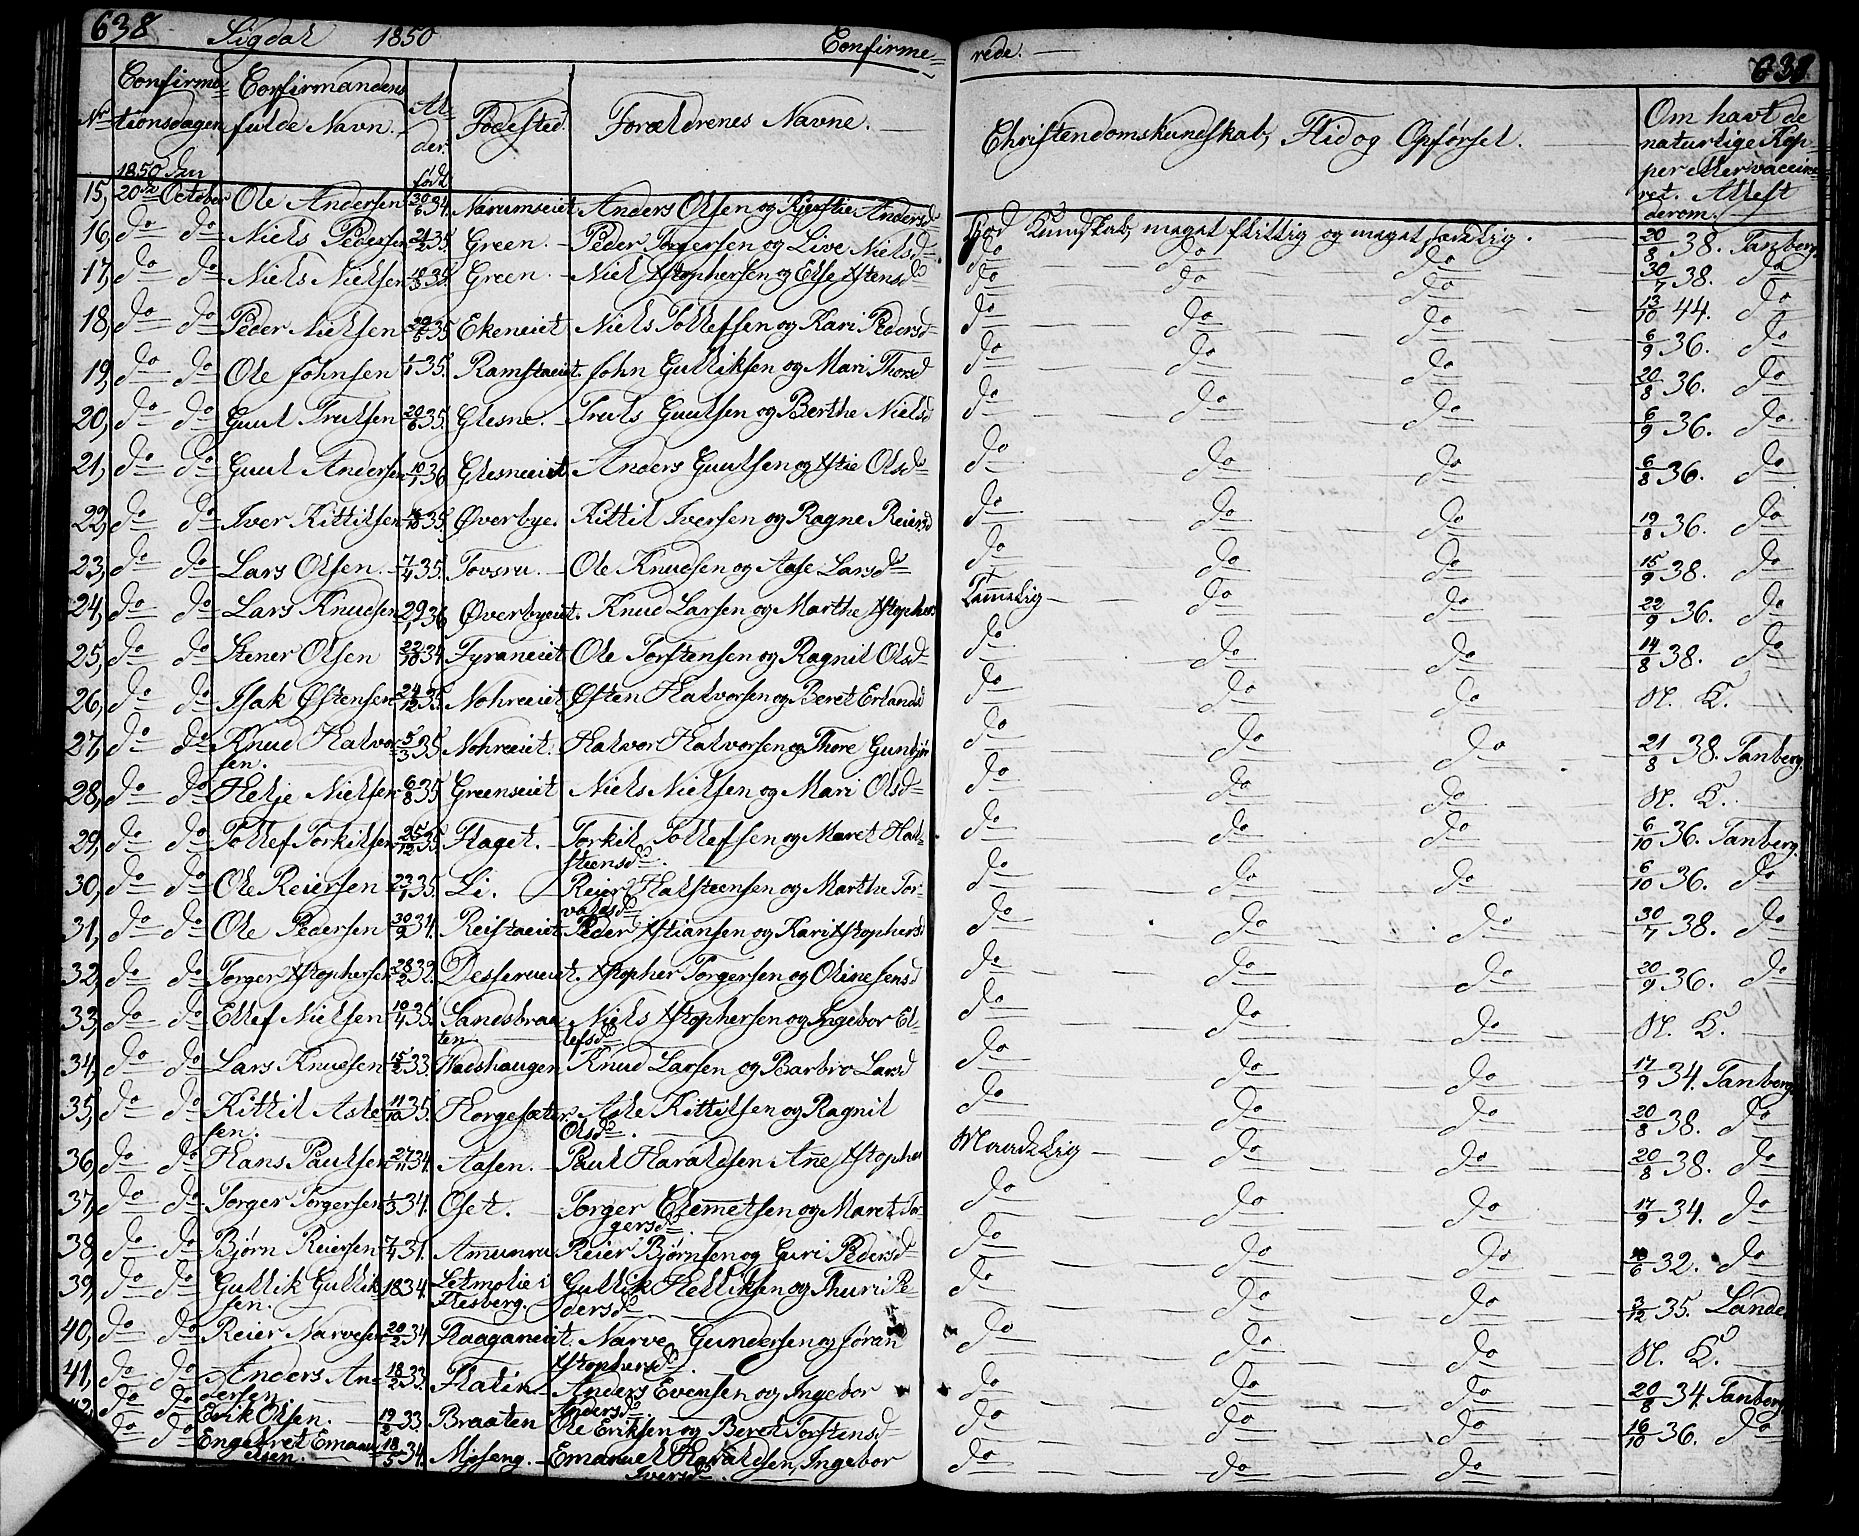 638 Sigdal 1850 Confirme=
rede. 639
No Confirma=tionsdagen Confirmandens fulde Navn. Al=der. Fødested Forældrenes Navne.
Christendomskundskab, Flid og Opførsel. Om havt de naturlige Kop=per eller vaccine=ret. Attest derom.
1850 den født
15, 20de October Ole Andersen 30/6 34. Narumseiet Anders Olsen og Kjerstie Andersd God Kundskab, meget flittig og meget sædelig. 20/8 38. Tanberg.
16, do do Niels Pedersen 35. Green. Peder Torgersen og Live Nielsd. do do do 30/7 38. do
17, do do Niels Nielsen 35. Green. Niels Xstophersen og Else Xstensd do do do 13/10 44. do
18, do do Peder Nielsen 35 Ekeneiet Niels Tollefsen og Kari Pedersd do do do 6/9 36. do
19, do do Ole Johnsen 35. Ramstaeiet. John Gulliksen og Mari Thorsd do do do 20/8 36. do
20, do do Guul Trulsen 20/8 35. Glesne. Truls Guulsen og Berthe Nielsd do do do 6/9 36. do
21, do do Guul Andersen 10/1 36 Glesneeiet Anders Guulsen og Xstie Olsd do do do 6/8 36. do
22, do do Iver Kittilsen 35. Øverbye. Kittil Iversen og Ragne Reiersd do do do 19/8 36. do
23, do do Lars Olsen. 7/4 35. Tovsru. Ole Knudsen og Aase Larsd do do do 15/9 38. do
24, do do Lars Knudsen 29/1 36 Øverbyeiet. Knud Larsen og Marthe Xstophers Tammelig do do 22/9 36. do
25, do do Stener Olsen 22/10 34 Fyraneiet Ole Torstensen og Ragnil Olsd do do do 14/8 38. do
26, do do Isak Østensen 24/12 35. Nohreeiet Østen Halvorsen og Beret Erlandsd do do do N. K.
27, do do Knud Halvor=sen. 5/3 35. Nohreeiet. Halvor Halvorsen og Thore Gunbjør do do do 21/8 38. Tanberg.
28, do do Helje Nielsen 6/8 35 Greenseiet Niels Nielsen og Mari Olsd do do do N. K.
29, do do Tollef Torkilsen 25/12 35 Flaget. Torkil Tollefsen og Maret Hal=steensd. do do do 6/10 36. Tanberg.
30, do do Ole Reiersen 23/1 35. Li. Reier Halsteensen og Marthe Tor=valdsd do do do 6/10 36. do
31, do do Ole Pedersen 30/9 34. Reistaeiet Peder Xstiansen og Kari Xstophersd do do do 30/7 38. do
32, do do Torger Xstophersen 28/2 32. Desserueiet. Xstopher Torgersen og Oline Jensd do do do 20/9 36. do
33, do do Ellef Nielsen 10/4 35. Sandsbraa=ten Niels Xstophersen og Ingebor El=lefsd do do do N. K.
34, do do Lars Knudsen 15/2 33. Knud Larsen og Barbro Larsd do do do 17/9 34. Tanberg.
35, do do Kittil Asle=sen. 11/10 35. Horgesæter Asle Kittilsen og Ragnil Olsd. do do do 20/8 38. do
36, do do Hans Paulsen 27/11 34. Aasen. Paul Haraldsen Anne Xstopher Maadelig do do 20/8 38. do
37, do do Torger Torgersen 34. Oset. Torger Clemetsen og Maret Tor=gersd do do do 17/9 34. do
38, do do Bjørn Reiersen 31. Amunru Reier Bjørnsen og Guri Pedersd do do do 32. do
39, do do Gullik Gullik=sen. 1834. Letmolie i Flesberg. Gullik Helliksen og Thuri Pe=dersd do do do 3/12 35. Lande
40, do do Reier Narvesen 20/2 34 Flaaganeiet. Narve Gundersen og Jøran Xstophersd. do do do N. K.
41, do do Anders An=dersen 18/2 33. Flatin Anders Evensen og Ingebor Andersd do do do 20/8 34. Tanberg
42, do do Erik Olsen. 19/2 33. Braaten Ole Eriksen og Beret Torstensd do do do 16/10 36. do
do do Engebret Emanu=elsen. 18/5 34. Mjøseng. Emanuel Haraldsen, Ingebor Iversd. do do do